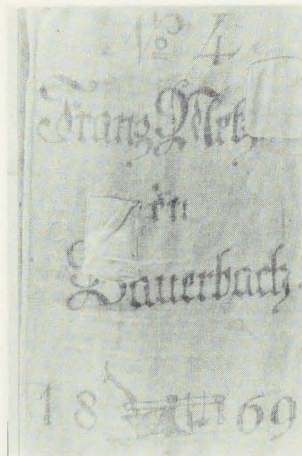 No 4
Franz Metz
in
Bauerbach
18 69